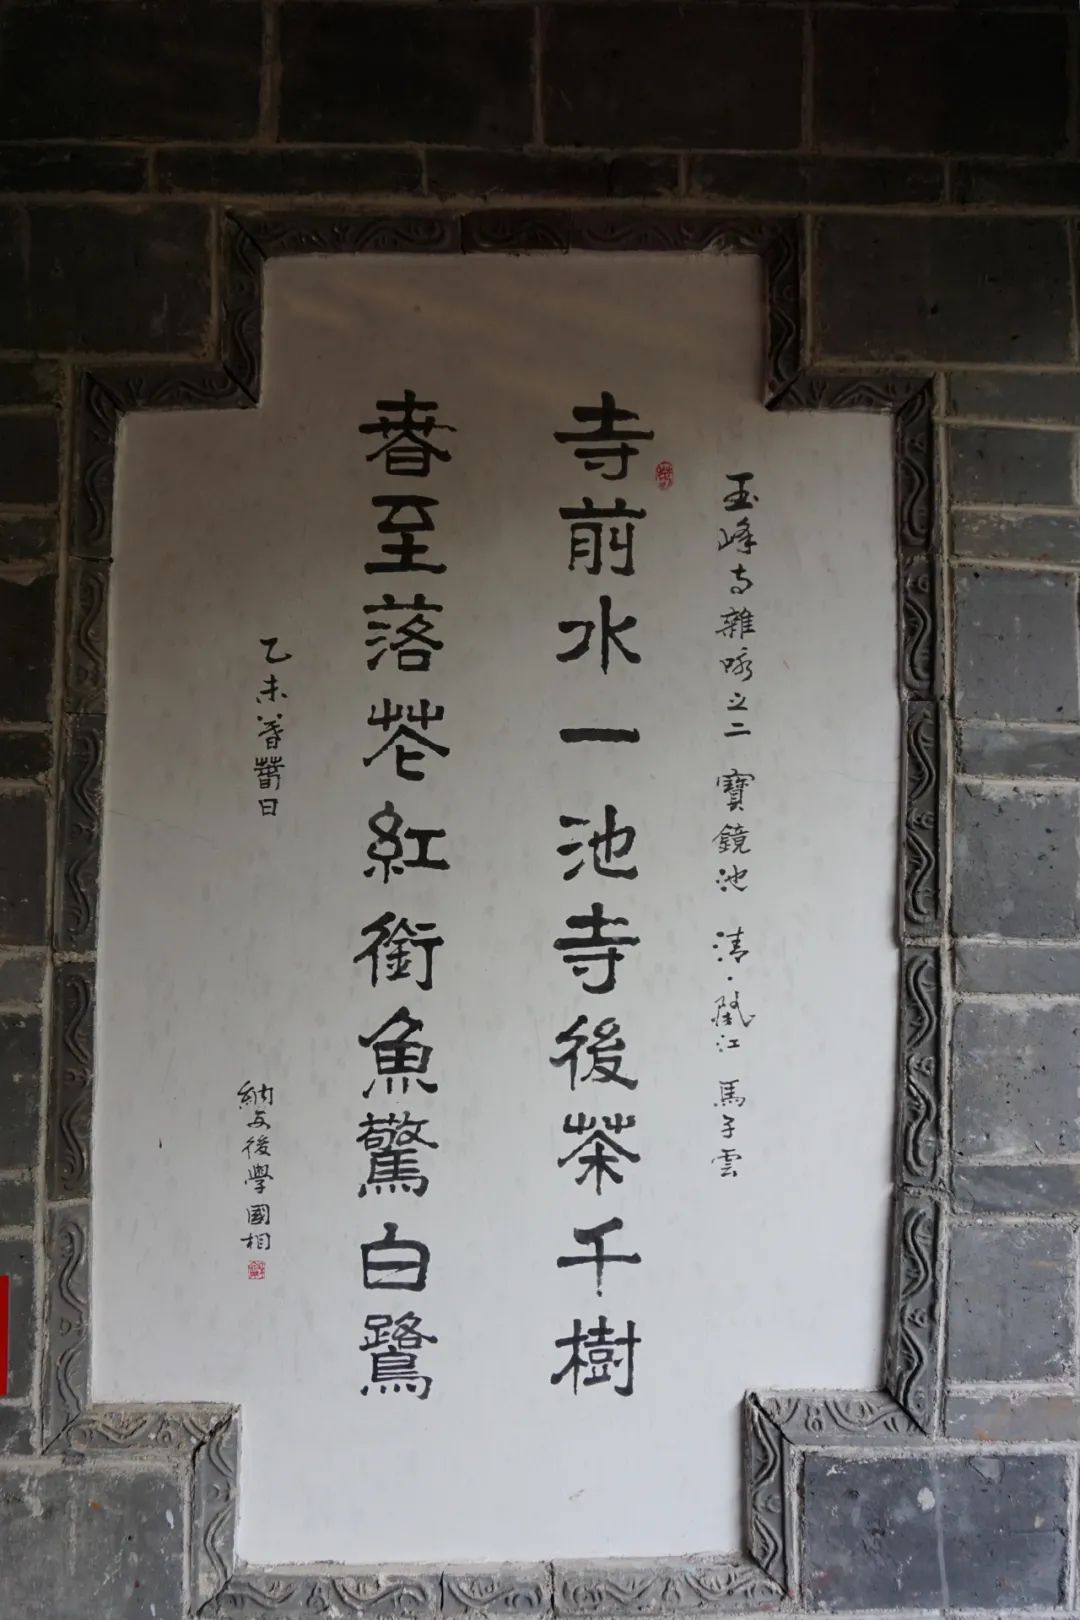 玉峰寺雜咏之二 寶鏡池 清·閬江 馬子雲
寺前水一池寺後茶千樹
春至落花紅銜魚驚白鷺
乙未暮春日
納西後學國相